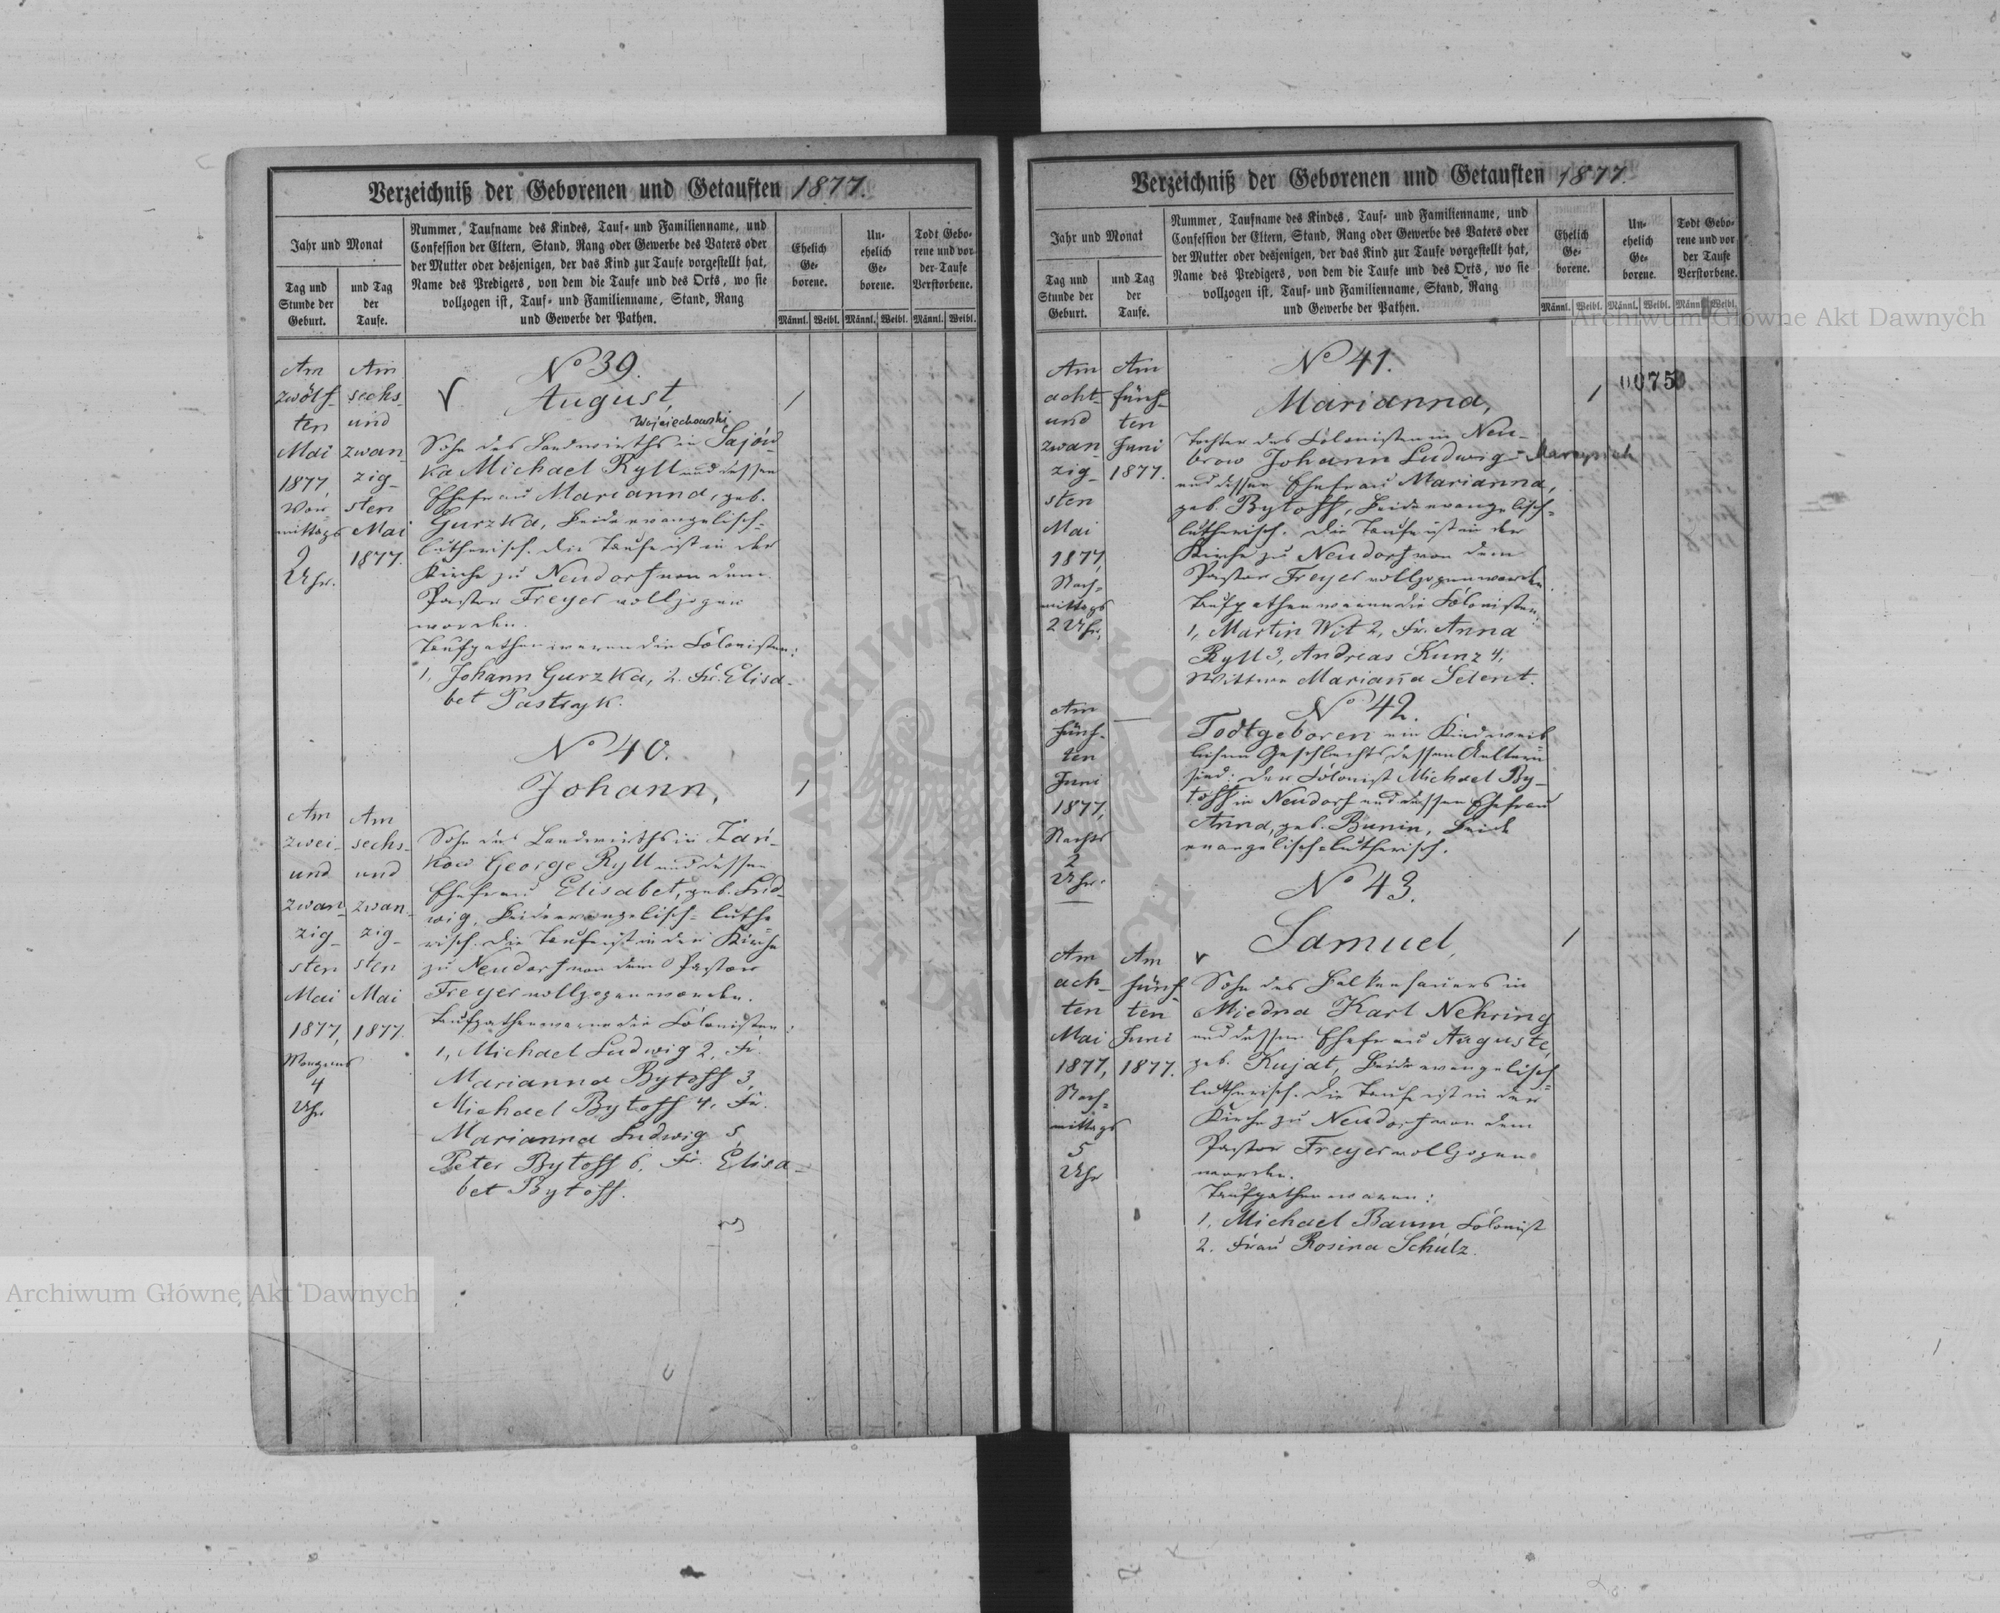 Verzeichniß der Geborenen und Getauften 1877.
Jahr und Monat
Tag und
Stunde der
Geburt.
und Tag
der
Taufe.
Nummer, Taufname des Kindes, Tauf- und Familienname, und
Confession der Eltern, Stand, Rang oder Gewerbe des Vaters oder
der Mutter oder desjenigen, der das Kind zur Taufe vorgestellt hat,
Name des Predigers, von dem die Taufe und des Orts, wo sie
vollzogen ist, Tauf- und Familienname, Stand, Rang
und Gewerbe der Pathen.
Ehelich
Ge-
borene.
Un-
ehelich
Ge-
borene.
Todt Gebo-
rene und vor
der Taufe
Verstorbene.
Männl. Weibl. Männl. Weibl. Männl. Weibl.
Am
zwölf-
ten
Mai
1877,
Vor-
mittags
9
Uhr.
Am
sechs-
und
zwan-
zig-
sten
Mai
1877.
No 39.
August,
Wojciechowski
Sohn des Landwirths in Sajów-
ka Michael Ryll und dessen
Ehefrau Marianna, geb.
Gurzka, Beide evangelisch-
lutherisch. Die Taufe ist in der
Kirche zu Neudorf von dem
Pastor Freyer vollzogen
worden.
Taufpathen waren die Colonisten:
1, Johann Gurzka, 2. Fr. Elisa-
bet Pastryk.
1
Am
zwei-
und
zwan-
zig-
sten
Mai
1877,
Morgens
4
Uhr
Am
sechs-
und
zwan-
zig-
sten
Mai
1877.
No 40.
Johann,
Sohn des Landwirths in Zań-
kow George Ryll und dessen
Ehefrau Elisabet, geb. Lud-
wig, Beide evangelisch-luthe
risch. Die Taufe ist in der Kirche
zu Neudorf von dem Pastor
Freyer vollzogen worden.
Taufpathen waren die Colonisten:
1, Michael Ludwig 2, Fr.
Marianna Bytoff 3,
Michael Bytoff 4, Fr.
Marianna Ludwig 5,
Peter Bytoff 6, Fr. Elisa-
bet Bytoff.
1
Verzeichniß der Geborenen und Getauften 1877.
Jahr und Monat
Tag und
Stunde der
Geburt.
und Tag
der
Taufe.
Nummer, Taufname des Kindes, Tauf- und Familienname, und
Confession der Eltern, Stand, Rang oder Gewerbe des Vaters oder
der Mutter oder desjenigen, der das Kind zur Taufe vorgestellt hat,
Name des Predigers, von dem die Taufe und des Orts, wo sie
vollzogen ist, Tauf- und Familienname, Stand, Rang
und Gewerbe der Pathen.
Ehelich
Ge-
borene.
Un-
ehelich
Ge-
borene.
Todt Gebo-
rene und vor
der Taufe
Verstorbene.
Männl. Weibl. Männl. Weibl. Männl. Weibl.
Am
acht-
und
zwan
zig-
sten
Mai
1877,
Nach-
mittags
2 Uhr.
Am
fünf-
ten
Juni
1877.
No 41.
Marianna,
Tochter des Colonisten in Neu-
brow Johann Ludwig
und dessen Ehefrau Marianna,
geb. Bytoff, Beide evangelisch-
lutherisch. Die Taufe ist in der
Kirche zu Neudorf von dem
Pastor Freyer vollzogen worden.
Taufpathen waren die Colonisten:
1, Martin Wit 2, Fr. Anna
Ryll 3, Andreas Kunz 4,
Wittwe Marianna Selent.
1
0075
Am
fünf-
ten
Juni
1877,
Nachts
2
Uhr.
No 42.
Todtgeboren ein Kind weib
lichen Geschlechts, dessen Aeltern
sind: der Colonist Michael By-
toff in Neudorf und dessen Ehefrau
Anna, geb. Bunin, Beide
evangelisch-lutherisch.
Am
ach-
ten
Mai
1877,
Nach-
mittags
5
Uhr
Am
fünf-
ten
Juni
1877.
No 43.
Samuel,
Sohn des Balkenhauers in
Miedna Karl Nehring
und dessen Ehefrau Auguste,
geb. Kujat, Beide evangelisch
lutherisch. Die Taufe ist in der
Kirche zu Neudorf von dem
Pastor Freyer vollzogen
worden.
Taufpathen waren:
1, Michael Baum Colonist
2. Frau Rosina Schulz.
1
Archiwum Główne Akt Dawnych
Archiwum Główne Akt Dawnych